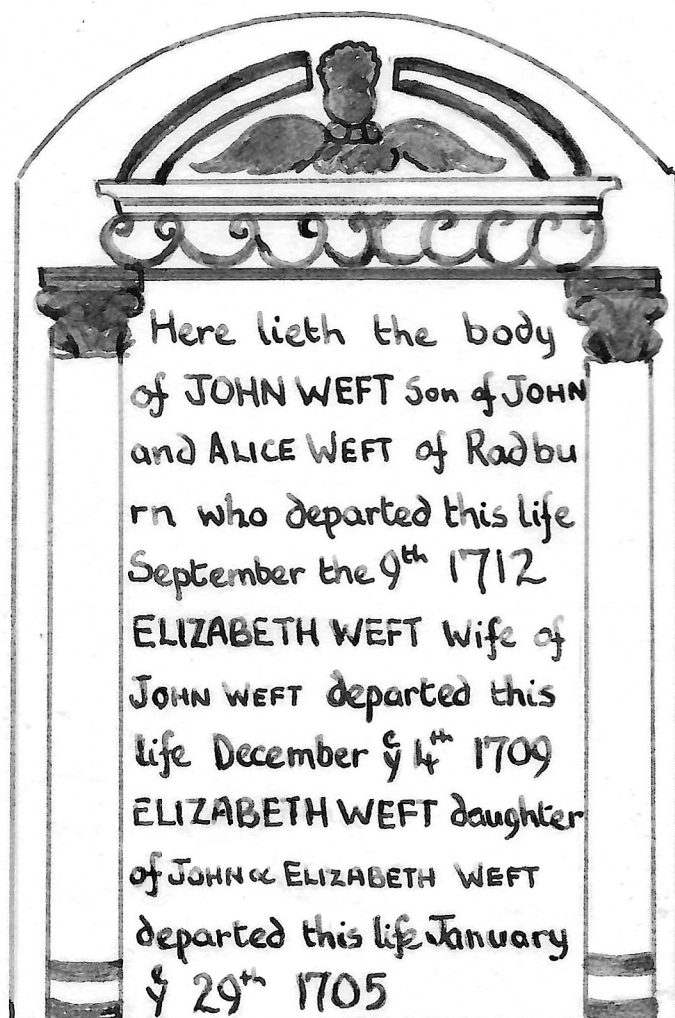 Here lieth the body
of JOHN WEFT Son of JOHN
and ALICE WEFT of Radbu
rn who departed this life
September the 9th 1712
ELIZABETH WEFT Wife of
JOHN WEFT departed this
life December ye 4th 1709
ELIZABETH WEFT daughter
of JOHN & ELIZABETH WEFT
departed this life January
ye 29th 1705